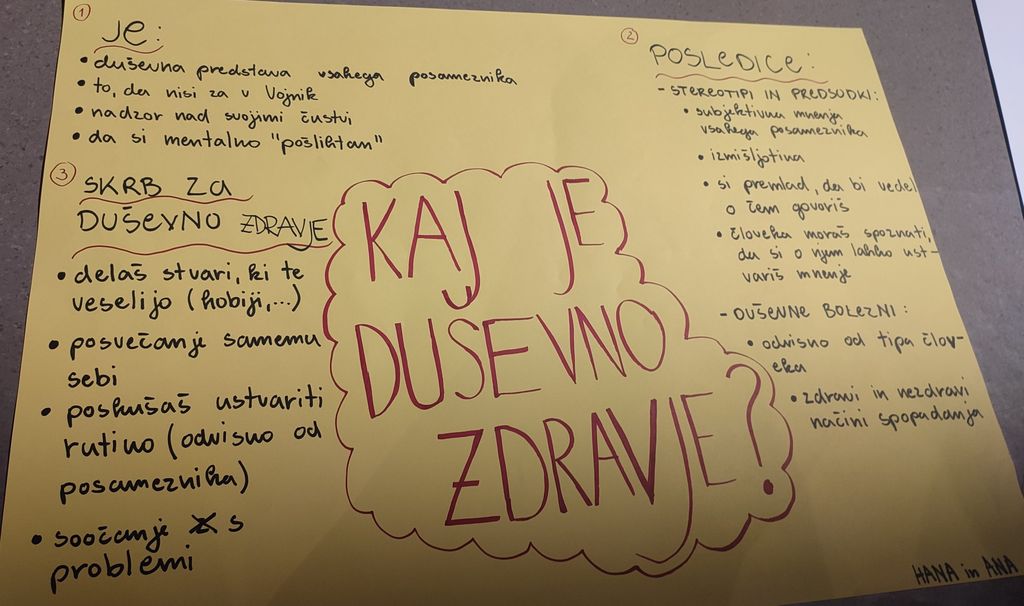 1
JE:
• duševna predstava vsakega posameznika
• to, da nisi za v Vojnik
• nadzor nad svojimi čustvi
• da si mentalno "pošlihtan"
2
POSLEDICE:
- STEREOTIPI IN PREDSODKI:
• subjektivna mnenja
vsakega posameznika
• izmišljotina
• si premlad, da bi vedel
o čem govoriš
• človeka moraš spoznati,
da si o njem lahko ust-
variš mnenje
- DUŠEVNE BOLEZNI:
• odvisno od tipa člov-
eka
• zdravi in nezdravi
načini spopadanja
3
SKRB ZA
DUŠEVNO ZDRAVJE
• delaš stvari, ki te
veselijo (hobiji,...)
• posvečanje samemu
sebi
• poskušaš ustvariti
rutino (odvisno od
posameznika)
• soočanje s
problemi
KAJ JE
DUSEVNO
ZDRAVJE?
HANA in ANA